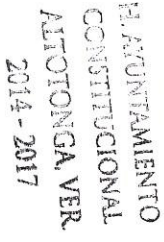 H. AYUNTAMIENTO
CONSTITUCIONAL
ALTOTONGA, VER.
2014 - 2017